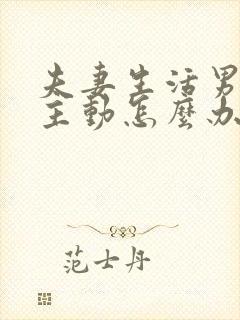 夫妻生活男
主動怎麼办
范士丹